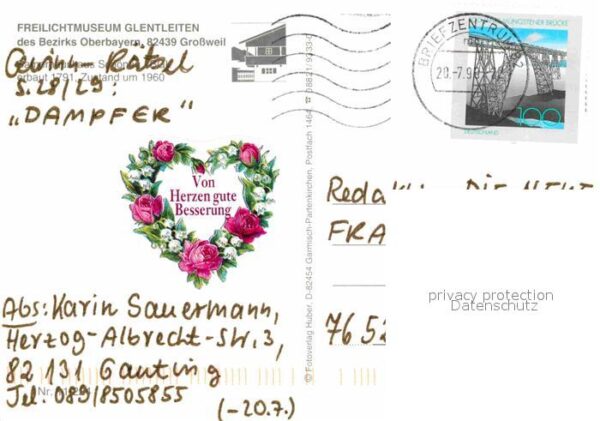 FREILICHTMUSEUM GLENTLEITEN
des Bezirks Oberbayern, 82439 Großweil
Rätsel
erbaut 1791, Zustand um 1960
S. 28/29:
"DAMPFER"
Von
Herzen gute
Besserung
Abs: Karin Sauermann,
Herzog-Albrecht-Str. 3,
82 131 Gauting
Tel: 089/8505855
(-20.7.)
© Fotoverlag Huber, D-82454 Garmisch-Partenkirchen, Postfach 1464
BRIEFZENTRUM
MÜNGSTENER BRÜCKE
100
DEUTSCHLAND
FRA
76 52
privacy protection
Datenschutz